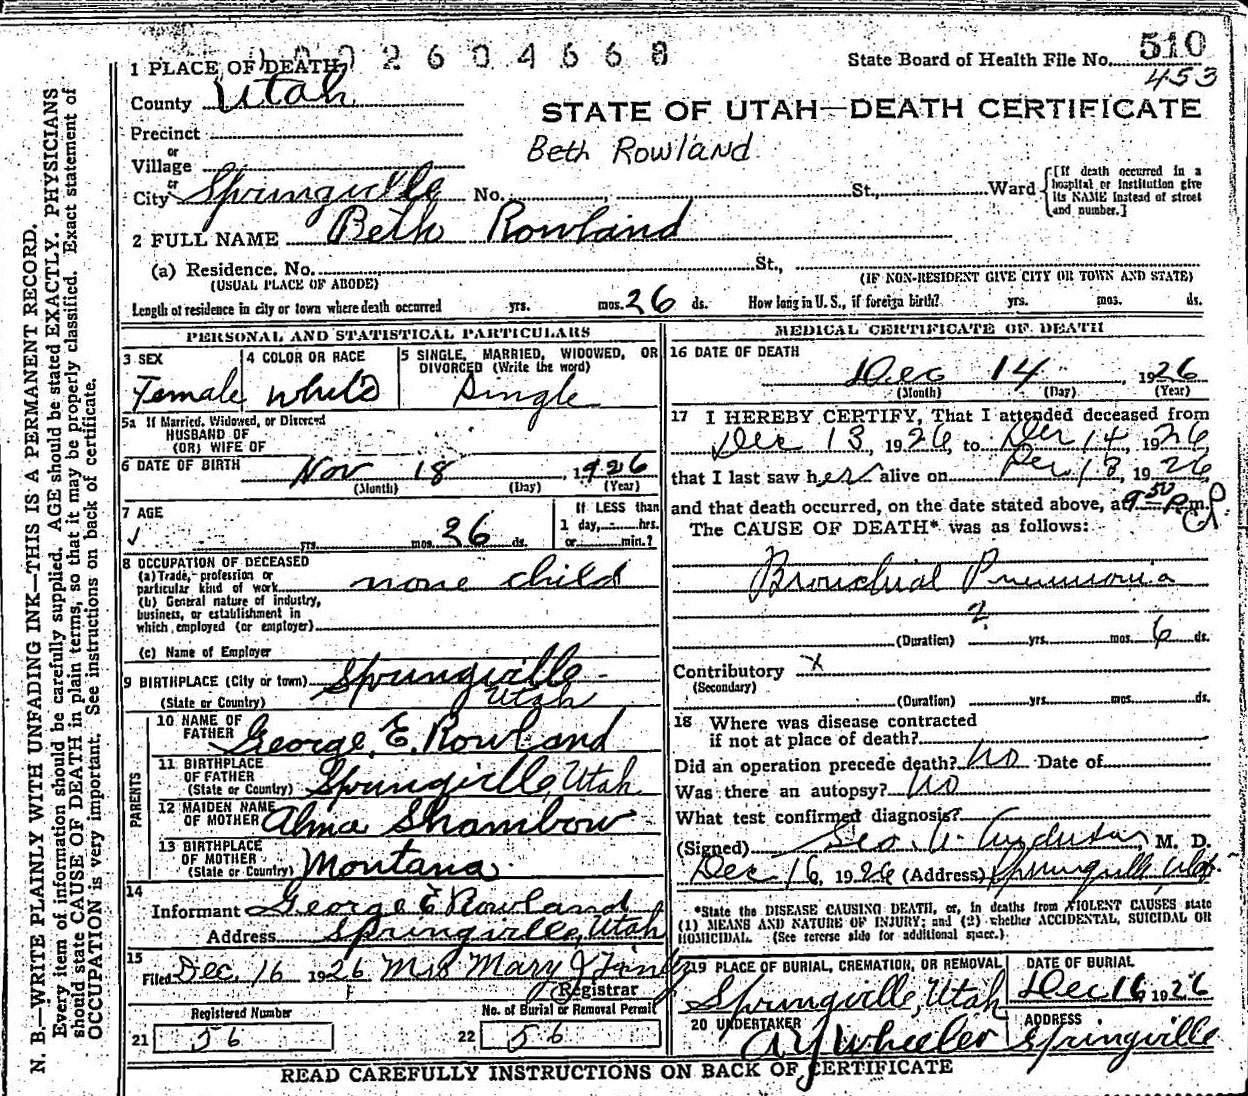 1 PLACE OF DEATH 2604668
State Board of Health File No. 510
453
County Utah
STATE OF UTAH—DEATH CERTIFICATE
Precinct
or
Village
Beth Rowland
or
City Springville No. St., Ward
[If death occurred in a
hospital or institution give
its NAME instead of street
and number.]
2 FULL NAME Beth Rowland
(a) Residence. No. St.,
(USUAL PLACE OF ABODE) (IF NON-RESIDENT GIVE CITY OR TOWN AND STATE)
Length of residence in city or town where death occurred yrs. mos. 26 ds. How long in U. S., if foreign birth? yrs. mos. ds.
PERSONAL AND STATISTICAL PARTICULARS
3 SEX
Female
4 COLOR OR RACE
White
5 SINGLE, MARRIED, WIDOWED, OR
DIVORCED (Write the word)
Single
5a If Married, Widowed, or Divorced
HUSBAND OF
(OR) WIFE OF
6 DATE OF BIRTH Nov 18, 1926
(Month) (Day) (Year)
7 AGE
yrs. mos. 26 ds.
If LESS than
1 day, hrs.
or min.?
8 OCCUPATION OF DECEASED
(a) Trade, profession or
particular kind of work none child
(b) General nature of industry,
business, or establishment in
which employed (or employer)
(c) Name of Employer
9 BIRTHPLACE (City or town) Springville
(State or Country) Utah
PARENTS
10 NAME OF
FATHER George E. Rowland
11 BIRTHPLACE
OF FATHER
(State or Country) Springville, Utah
12 MAIDEN NAME
OF MOTHER Alma Shambow
13 BIRTHPLACE
OF MOTHER
(State or Country) Montana
14
Informant George E Rowland
Address Springville, Utah
15
Filed Dec. 16 1926 Mrs Mary J
Registrar
Registered Number
21 56
No. of Burial or Removal Permit
22 56
MEDICAL CERTIFICATE OF DEATH
16 DATE OF DEATH
Dec 14, 1926
(Month) (Day) (Year)
17 I HEREBY CERTIFY, That I attended deceased from
Dec 13 1926, to Dec 14, 1926
that I last saw her alive on Dec 13, 1926,
and that death occurred, on the date stated above, at 9 50 P.m.
The CAUSE OF DEATH* was as follows:
Bronchial Pneumonia
2
(Duration) yrs. mos. 6 ds.
Contributory x
(Secondary)
(Duration) yrs. mos. ds.
18 Where was disease contracted
if not at place of death?
Did an operation precede death? no Date of
Was there an autopsy? no
What test confirmed diagnosis?
(Signed) Geo. Anderson, M. D.
Dec 16, 1926 (Address) Springville, Utah
*State the DISEASE CAUSING DEATH, or, in deaths from VIOLENT CAUSES state
(1) MEANS AND NATURE OF INJURY; and (2) whether ACCIDENTAL, SUICIDAL OR
HOMICIDAL. (See reverse side for additional space.)
19 PLACE OF BURIAL, CREMATION, OR REMOVAL
Springville, Utah
DATE OF BURIAL
Dec 16, 1926
20 UNDERTAKER
A Y Wheeler
ADDRESS
Springville
READ CAREFULLY INSTRUCTIONS ON BACK OF CERTIFICATE
N. B.—WRITE PLAINLY WITH UNFADING INK—THIS IS A PERMANENT RECORD.
Every item of information should be carefully supplied. AGE should be stated EXACTLY. PHYSICIANS
should state CAUSE OF DEATH in plain terms, so that it may be properly classified. Exact statement of
OCCUPATION is very important. See instructions on back of certificate.